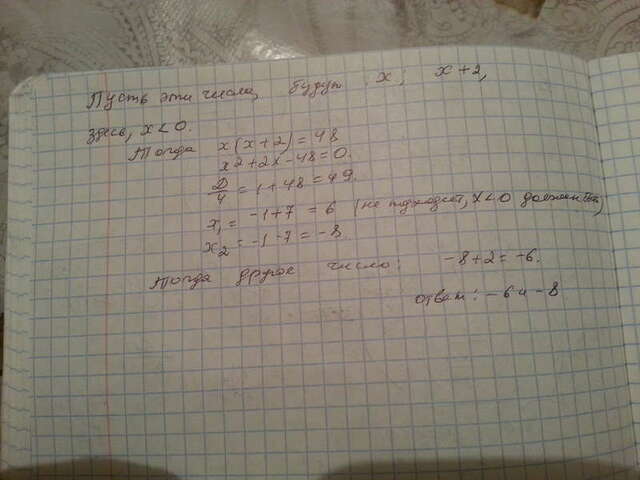 Пусть эти числа будут x, x+2,
здесь, x<0.
Тогда x(x+2)=48
x²+2x-48=0.
D/4=1+48=49.
x₁=-1+7=6 (не подходит, x<0 должен быть)
x₂=-1-7=-8
Тогда другое число: -8+2=-6.
ответ: -6 и -8